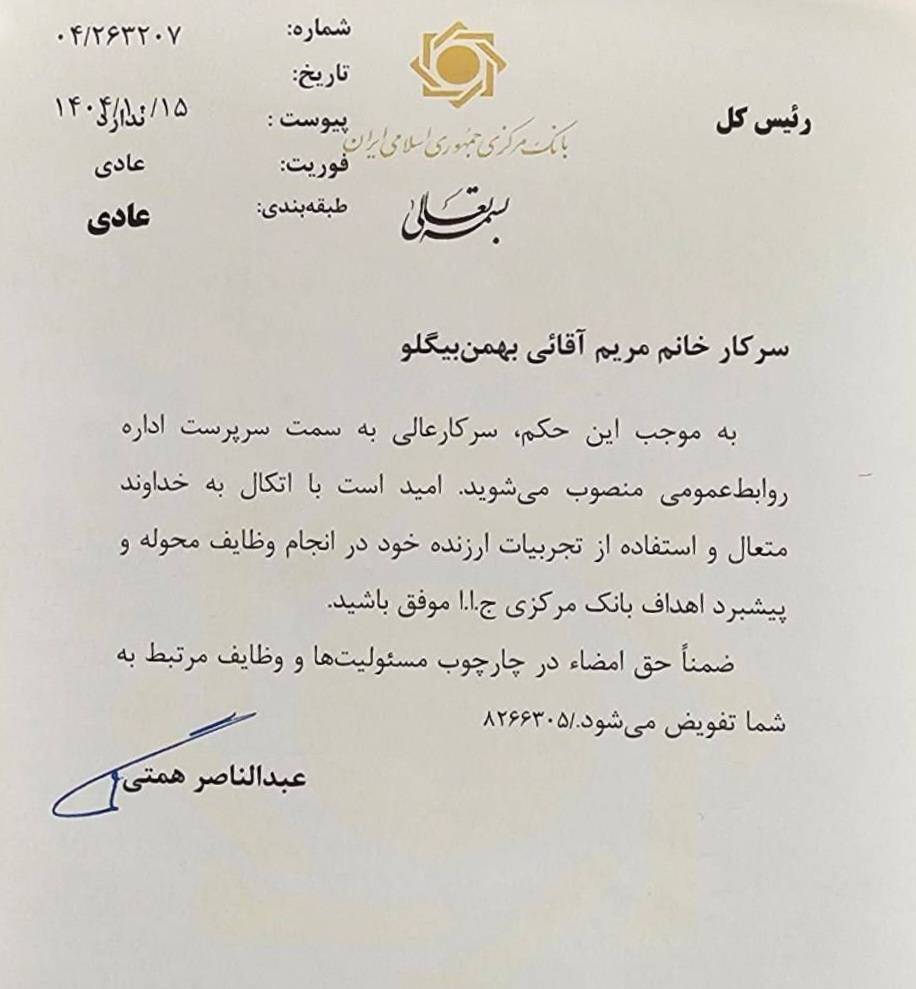 رئیس کل
بانک مرکزی جمهوری اسلامی ایران
بسمه تعالی
شماره: ۰۴/۲۶۳۲۰۷
تاریخ: ۱۴۰۴/۱۰/۱۵
پیوست : ندارد
فوریت: عادی
طبقه‌بندی: عادی
سرکار خانم مریم آقائی بهمن‌بیگلو
به موجب این حکم، سرکارعالی به سمت سرپرست اداره
روابط‌عمومی منصوب می‌شوید. امید است با اتکال به خداوند
متعال و استفاده از تجربیات ارزنده خود در انجام وظایف محوله و
پیشبرد اهداف بانک مرکزی ج.ا.ا موفق باشید.
ضمناً حق امضاء در چارچوب مسئولیت‌ها و وظایف مرتبط به
شما تفویض می‌شود./۸۲۶۶۳۰۵
عبدالناصر همتی